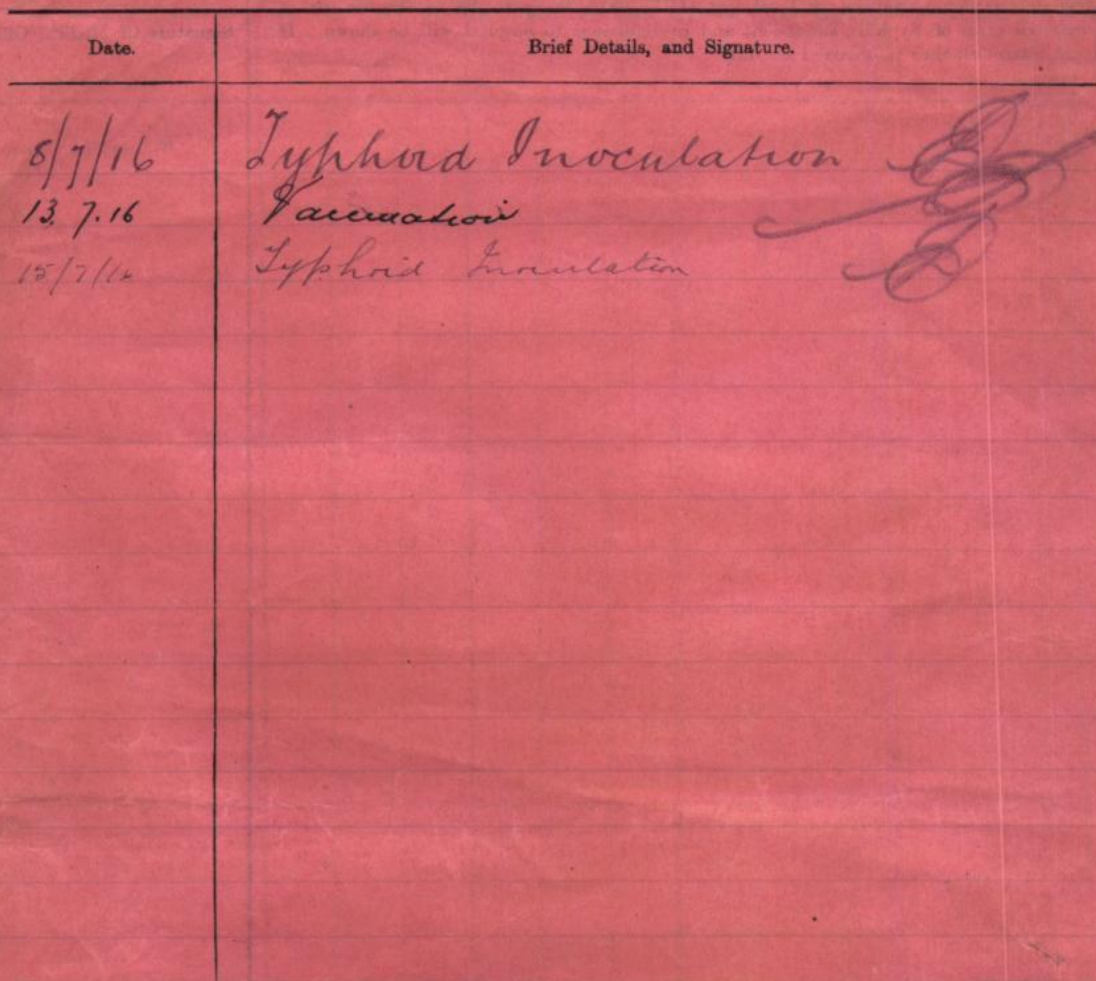 Date. Brief Details, and Signature.
8/7/16 Typhoid Inoculation
13.7.16 Vaccination
15/7/16 Typhoid Inoculation